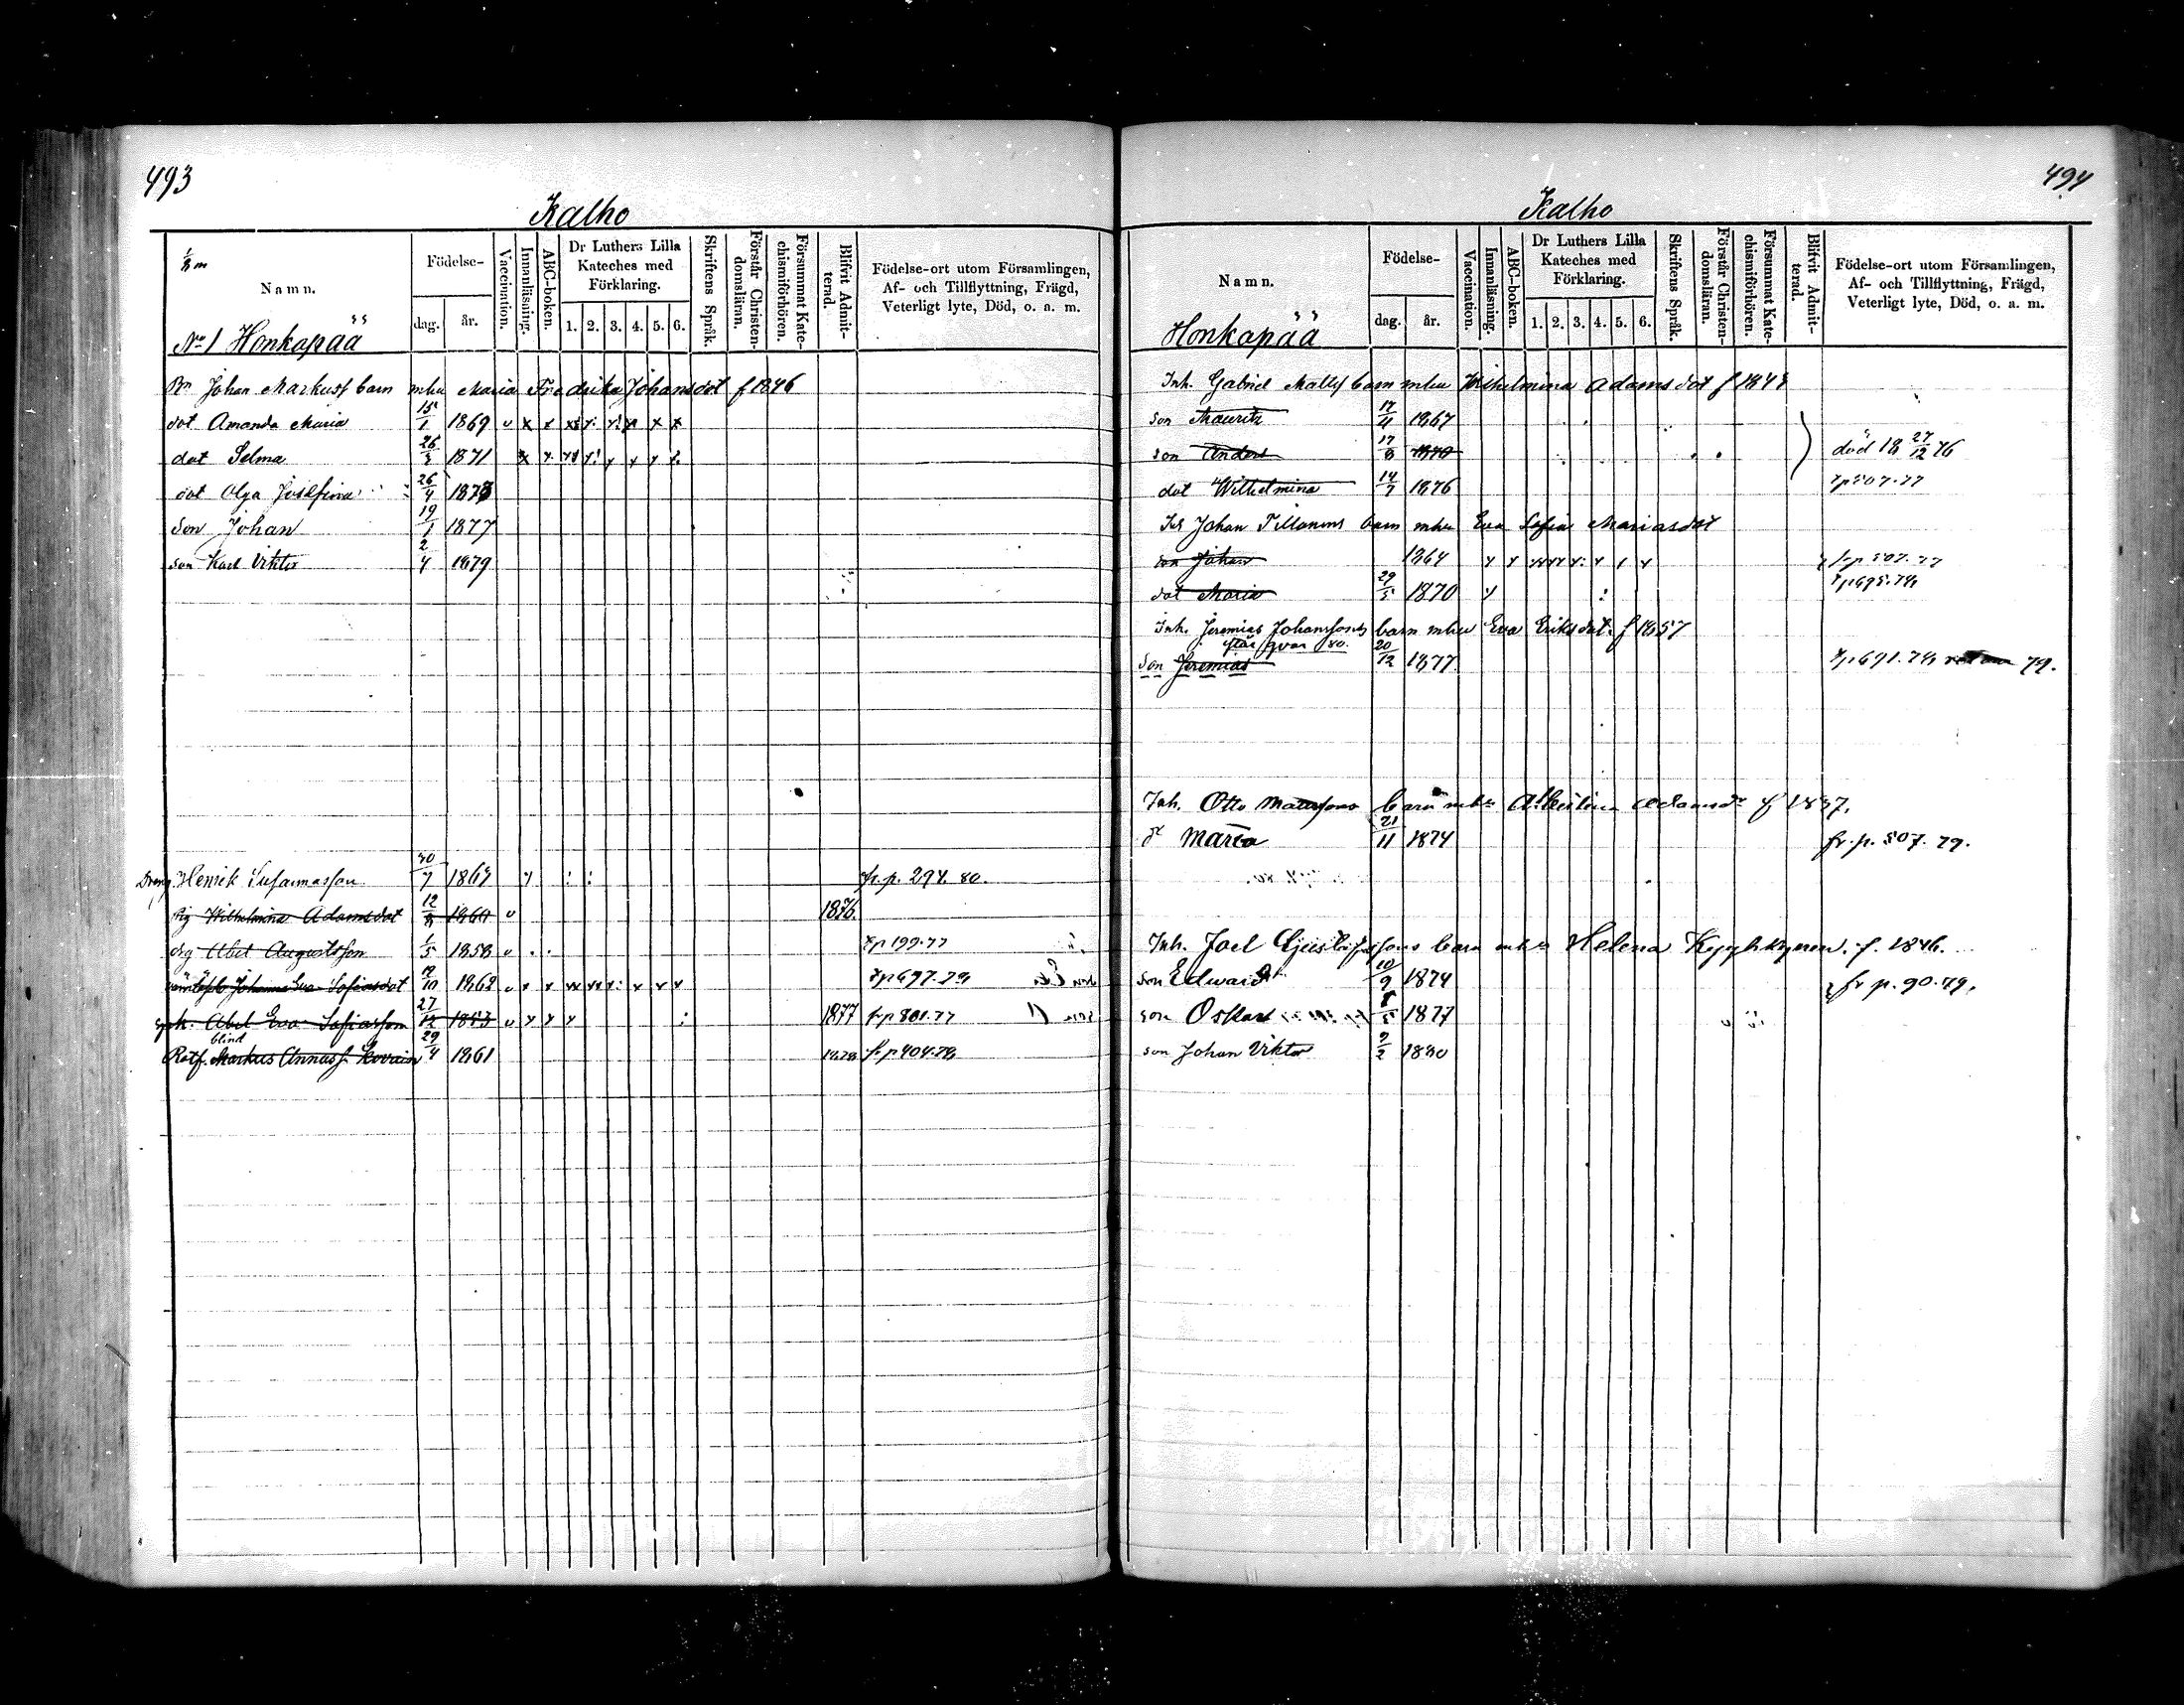 493
Kalho
1/8 m
Namn.
Födelse-
dag.
år.
Vaccination.
Innanläsning.
ABC-boken.
Dr Luthers Lilla Kateches med Förklaring.
1. 2. 3. 4. 5. 6.
Skriftens Språk.
Förstår Christendomsläran.
Försummat Katechismiförhören.
Blifvit Admitterad.
Födelse-ort utom Församlingen, Af- och Tillflyttning, Frägd, Veterligt lyte, Död, o. a. m.
No 1 Honkapää
Bn Johan Markusf barn mhu Maria Fredrika Johansdot f 1846
dot Amanda Maria 15/1 1869 v x x
dot Selma 26/3 1871
dot Olga Josefina 26/4 1873
Son Johan 19/1 1877
son Karl Viktor 2/4 1879
Dreng Henrik Susannasson 30/7 1867 fr. p. 294. 80.
pig Wilhelmina Adamsdot 12/8 1860 v 1876
drg Abel Augustsson 1/5 1858 v
Johanna Eva Sofiasdot 12/10 1862
Abel Eva Sofiasson 27/12 1853 v 1877
blind
Rotf. Markus Annasf. 29/4 1861 1878
494
Kalho
Namn.
Födelse-
dag.
år.
Vaccination.
Innanläsning.
ABC-boken.
Dr Luthers Lilla Kateches med Förklaring.
1. 2. 3. 4. 5. 6.
Skriftens Språk.
Förstår Christendomsläran.
Försummat Katechismiförhören.
Blifvit Admitterad.
Födelse-ort utom Församlingen, Af- och Tillflyttning, Frägd, Veterligt lyte, Död, o. a. m.
Honkapää
Inh. Gabriel Mattsf barn mhu Wilhelmina Adamsdot f
son Mauritz 17/4 1867
son Anders 17/8 1870 död 18 27/12 76
dot Wilhelmina 14/7 1876
Johan Tillanens barn mhu Eva Sofia Mariasdot
son Johan 1864
dot Maria 29/5 1870
Inh. Jeremias Johanssons barn mhu Eva Eriksdot. f 1857
står qvar 80.
Son Jeremias 20/12 1877 79.
Inh. Otto Matssons barn mhu Albertina Adamsdr f
dr Maria 21/11 1874 fr. p. 507. 79.
Inh. Joel barn mhu Helena f. 1846.
son Edward 10/9 1874 fr p. 90. 79.
son Oskar 1877
son Johan Viktor 9/2 1880